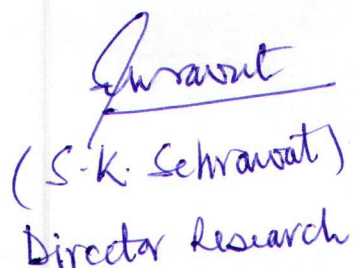 Sehrawat
(S.K. Sehrawat)
Director Research